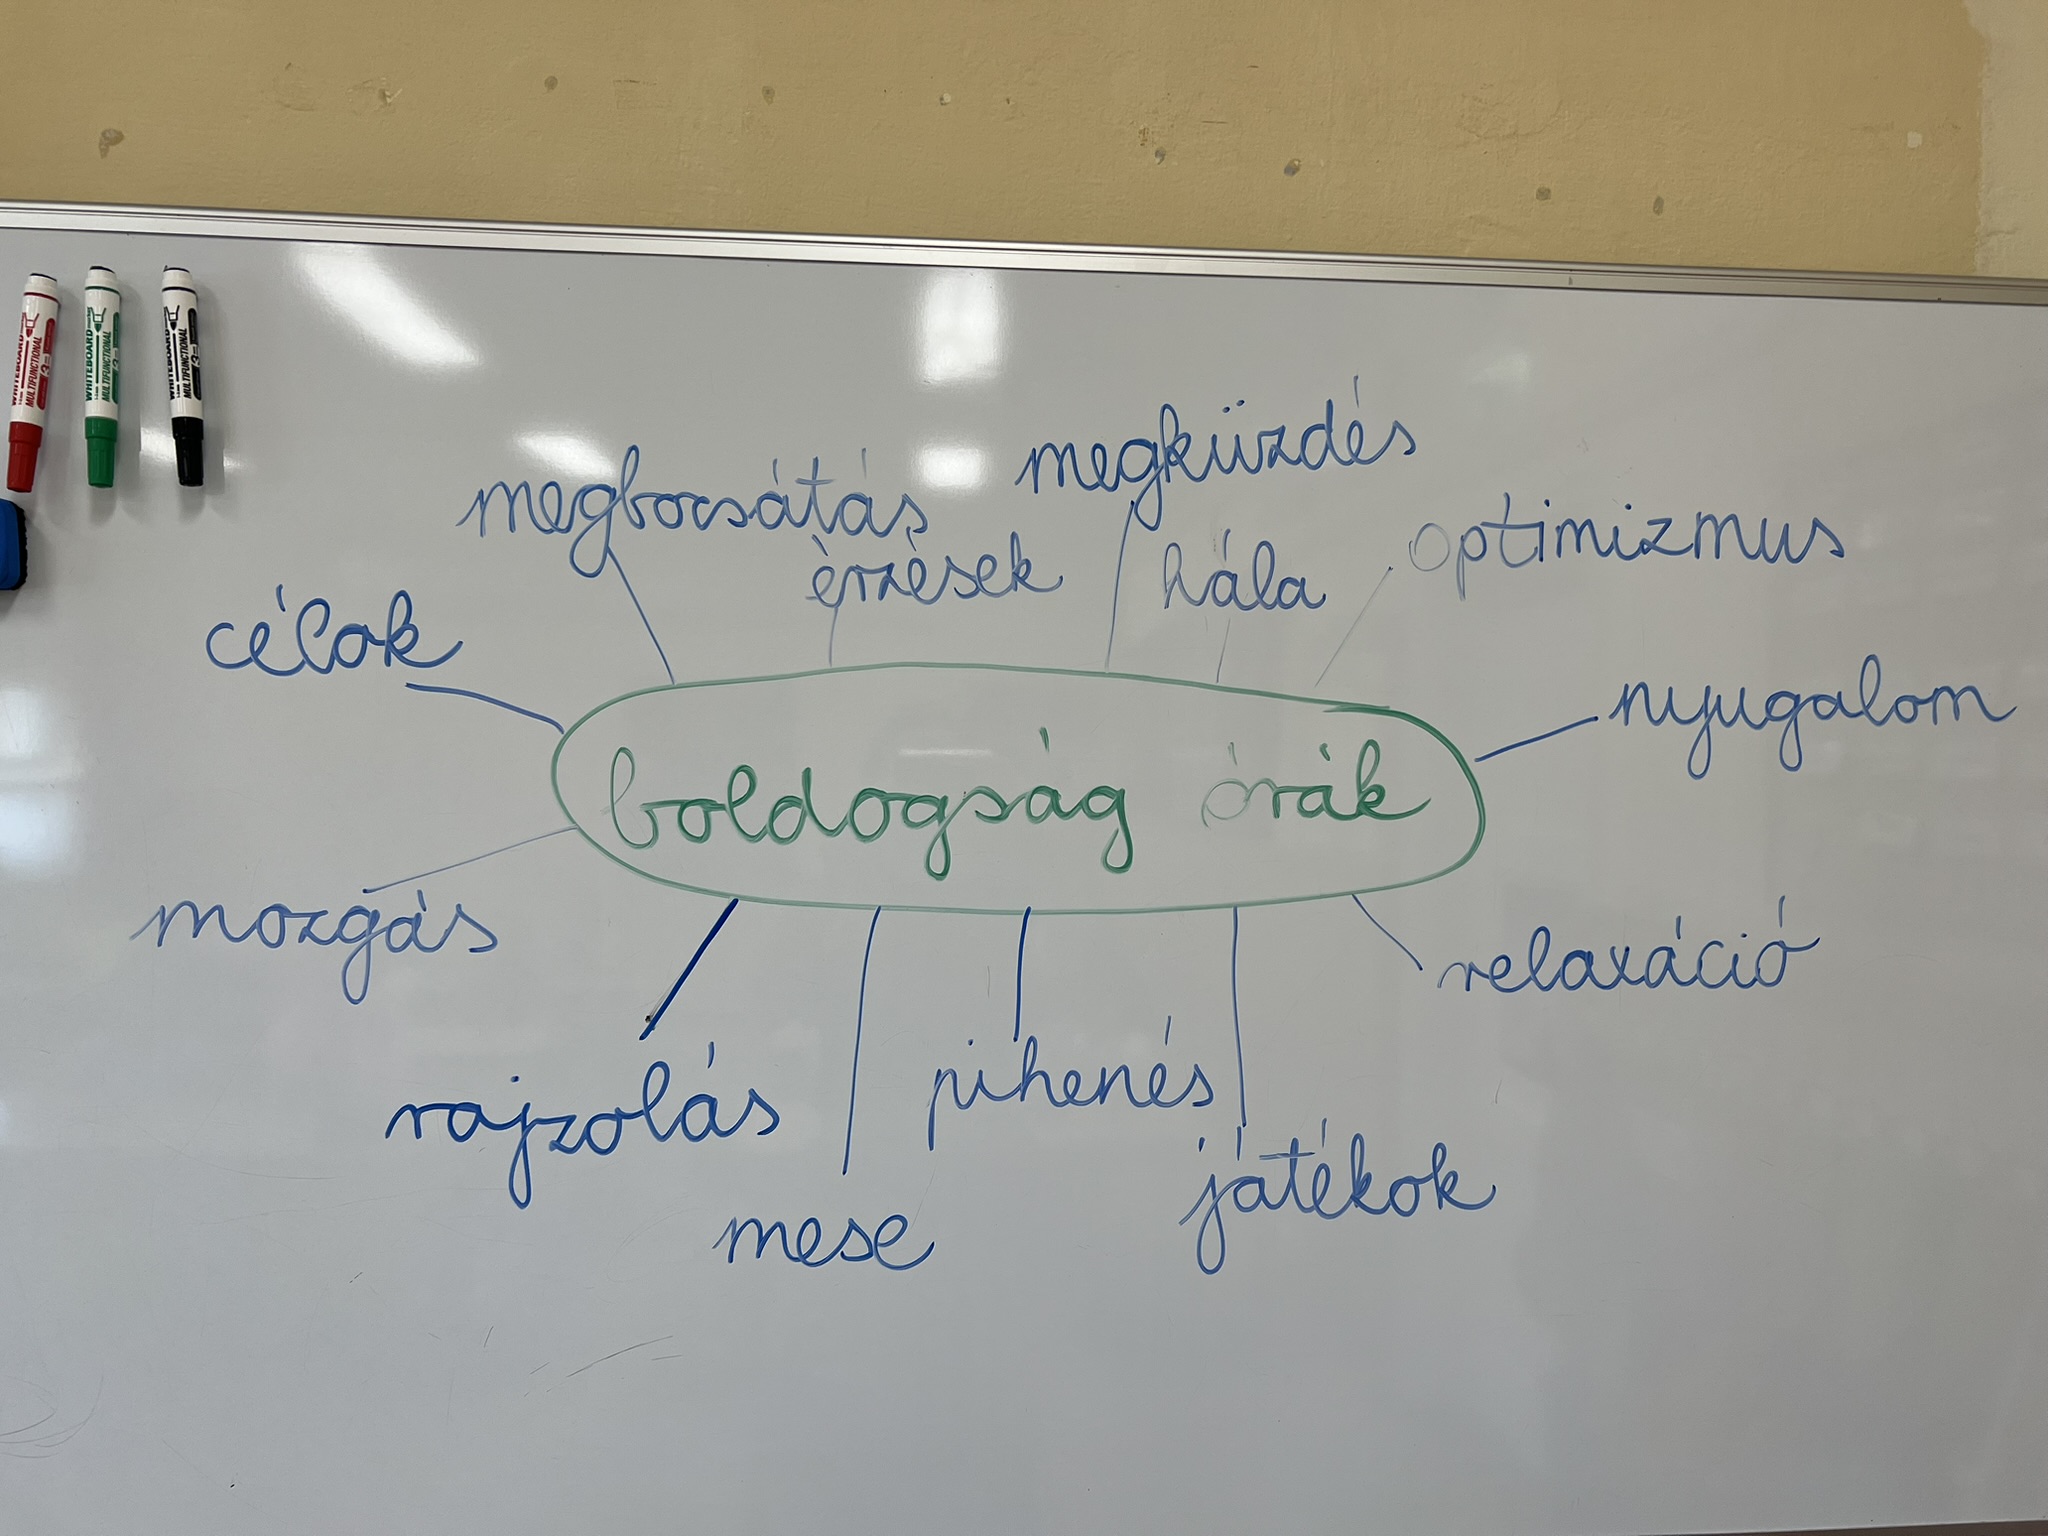 WHITEBOARD
MULTIFUNCTIONAL
WHITEBOARD
MULTIFUNCTIONAL
WHITEBOARD
MULTIFUNCTIONAL
megküzdés
megbocsátás
optimizmus
érzések
hála
célok
nyugalom
boldogság órák
mozgás
relaxáció
rajzolás
pihenés
játékok
mese